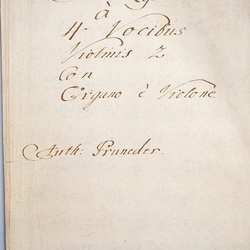 à
4 Vocibus
Violinis 2
Con
Organo è Violone
Auth: Pruneder.